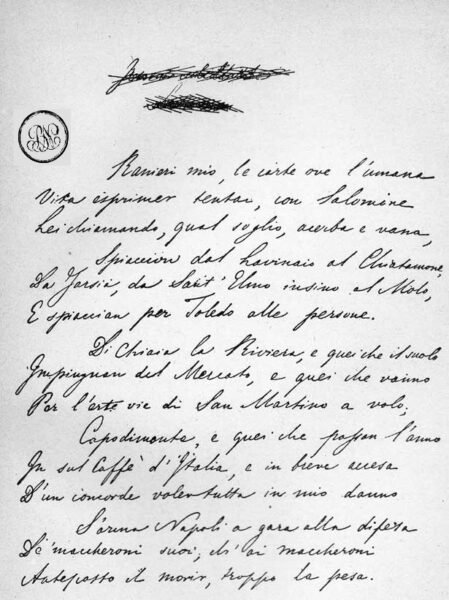 Ranieri mio, le carte ove l'umana
Vita esprimer tentai, con Salomone
Lei chiamando, qual soglio, acerba e vana,
Spiaccion dal Lavinaio al Chiatamone,
Da Tarsia, da Sant'Elmo insino al Molo,
E spiaccion per Toledo alle persone.
Di Chiaia la Riviera, e quei che il suolo
Impinguan del Mercato, e quei che vanno
Per l'erte vie di San Martino a volo.
Capodimonte, e quei che passan l'anno
In sul Caffè d'Italia, e in breve accesa
D'un concorde voler tutta in mio danno
S'arma Napoli a gara alla difesa
De' maccheroni suoi; ch'ai maccheroni
Anteposto il morir, troppo la pesa.